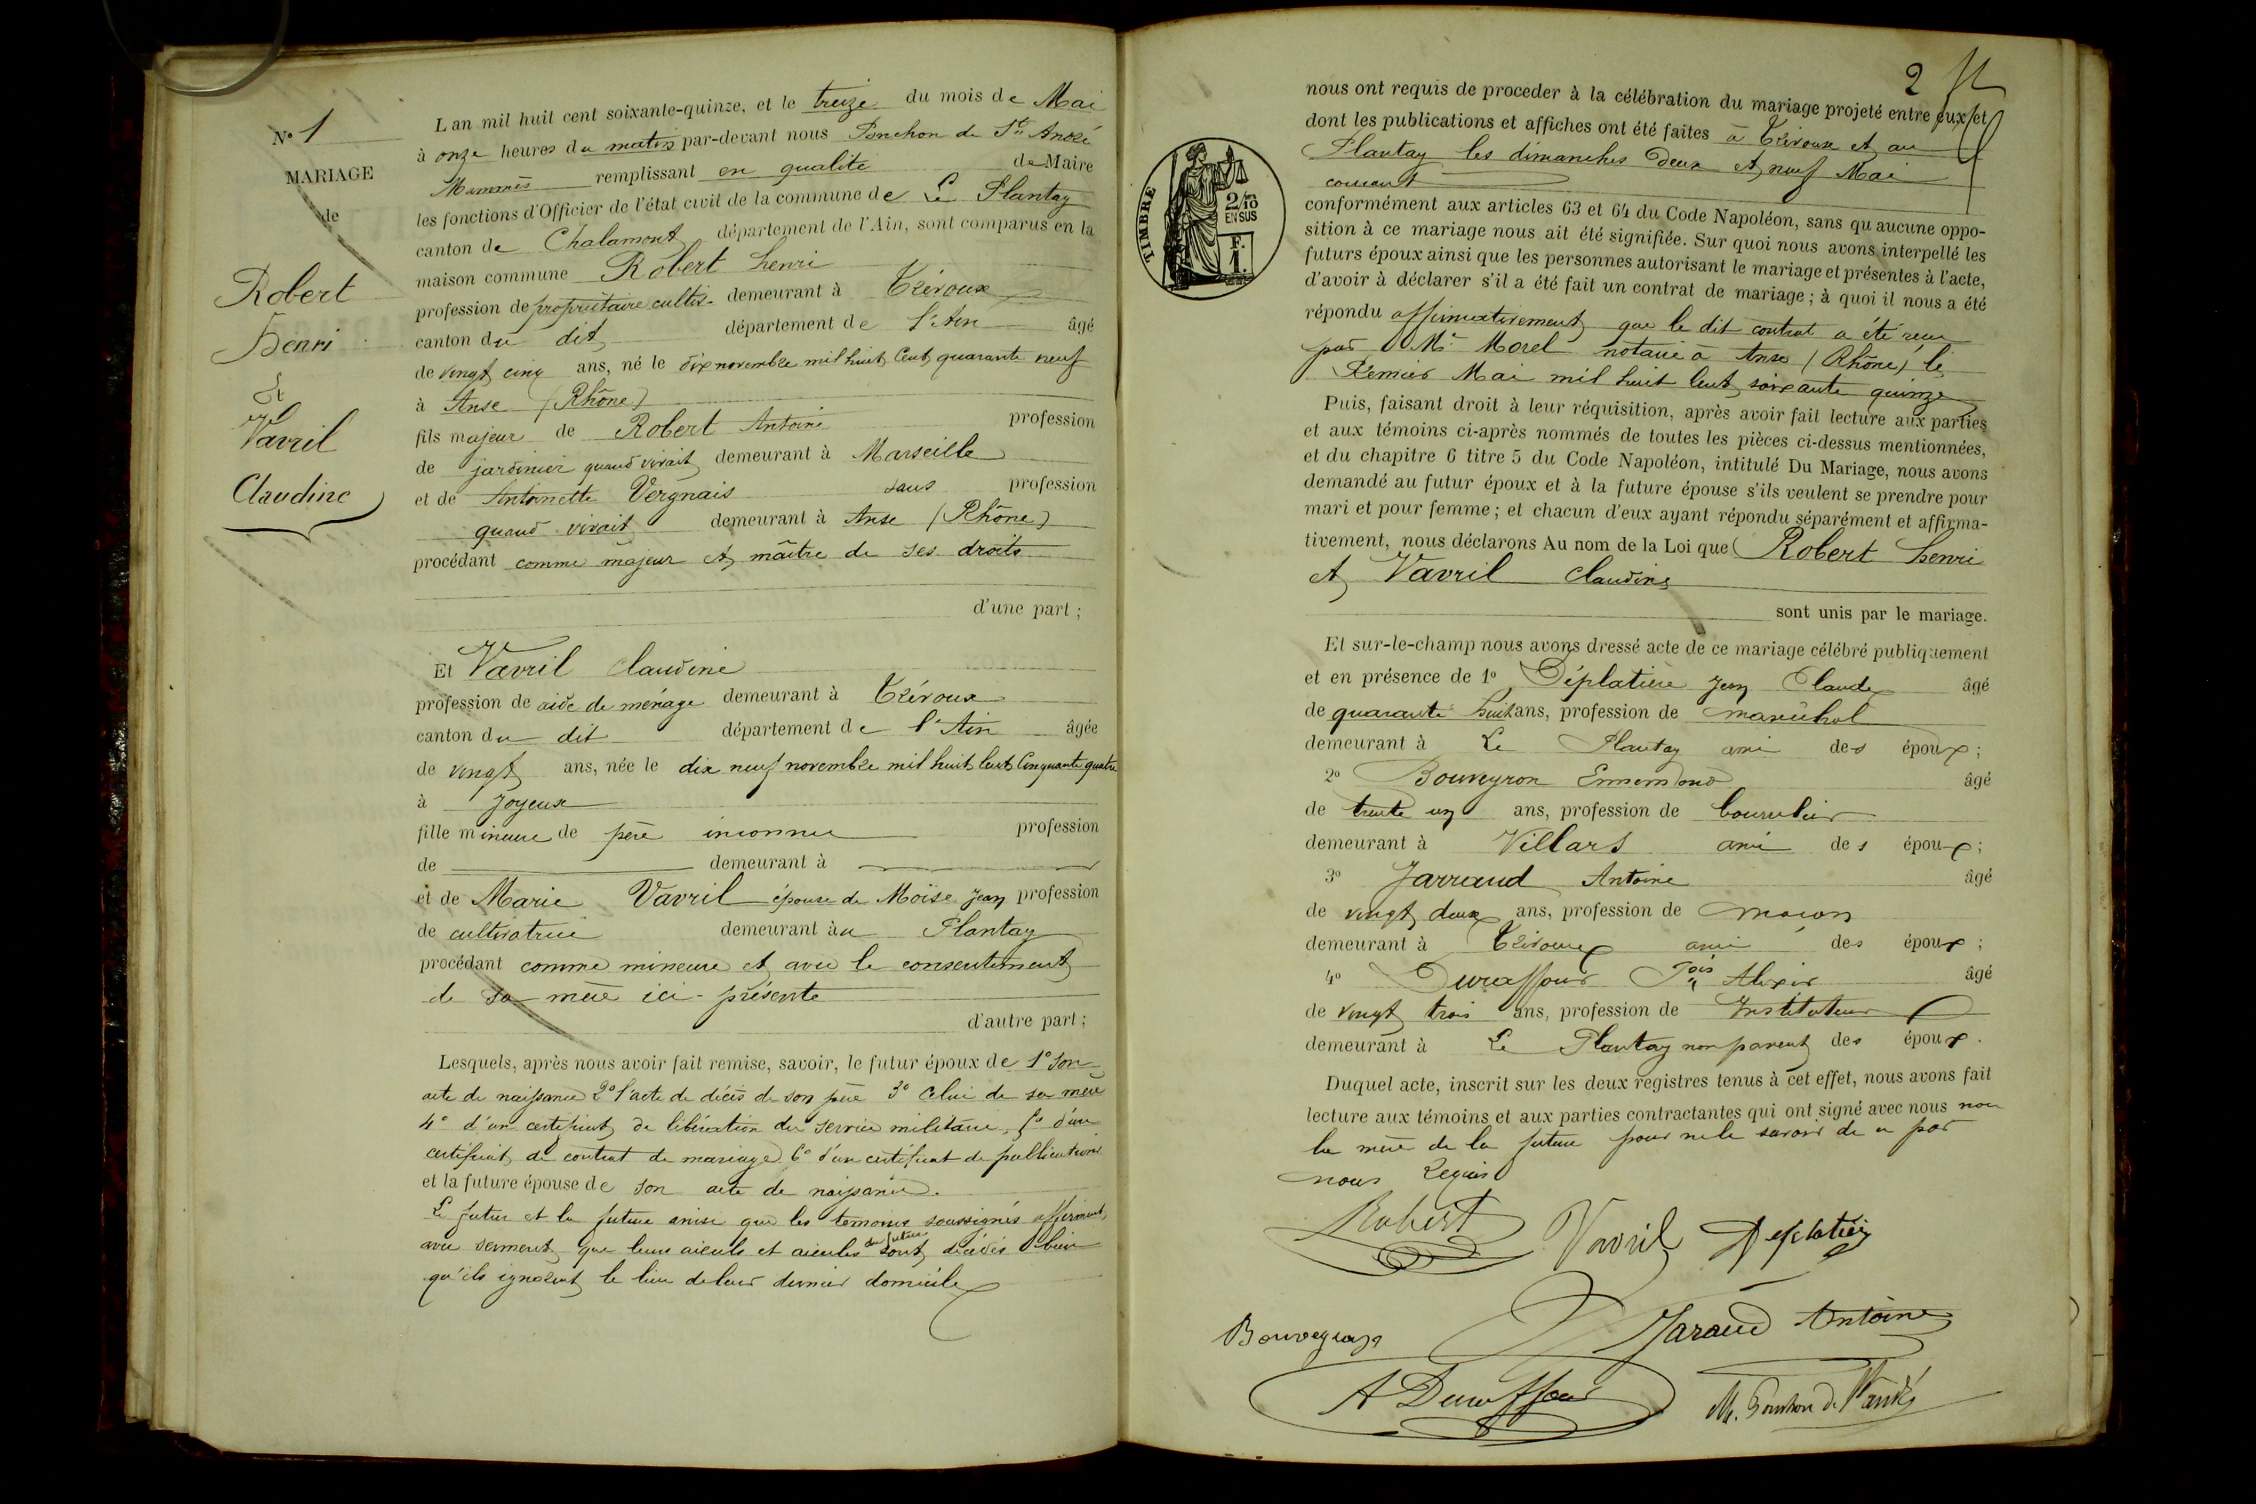 N° 1
MARIAGE
de
Robert
Henri
Et
Vavril
Claudine
L'an mil huit cent soixante-quinze, et le treize du mois de Mai
à onze heures du matin par-devant nous Ponchon de St André
Mammès remplissant en qualité de Maire
les fonctions d'Officier de l'état civil de la commune de Le Plantay
canton de Chalamont département de l'Ain, sont comparus en la
maison commune Robert henri
profession de propriétaire cultiv. demeurant à Trévoux
canton du dit département de l'Ain âgé
de vingt cinq ans, né le dix novembre mil huit Cent quarante neuf
à Anse (Rhône)
fils majeur de Robert Antoine profession
de jardinier quand vivait demeurant à Marseille
et de Antoinette Vergnais sans profession
quand vivait demeurant à Anse (Rhône)
procédant comme majeur et maître de ses droits
d'une part ;
Et Vavril Claudine
profession de aide de ménage demeurant à Trévoux
canton du dit département de l'Ain âgée
de vingt ans, née le dix neuf novembre mil huit Cent Cinquante quatre
à Joyeux
fille mineure de père inconnu profession
de demeurant à
et de Marie Vavril épouse de Moïse Jean profession
de cultivatrice demeurant àu Plantay
procédant comme mineure et avec le consentement
de sa mère ici-présente
d'autre part ;
Lesquels, après nous avoir fait remise, savoir, le futur époux de 1° Son
acte de naissance 2° l'acte de décès de son père 3° Celui de sa mère
4° d'un certificat de libération du service militaire, 5° d'un
certificat de contrat de mariage 6° d'un certificat de publications
et la future épouse de son acte de naissance.
Le futur et la future ainsi que les témoins soussignés affirment
avec serment que leurs aïeuls et aïeules du futur sont décédés & bien
qu'ils ignorent le lieu de leur dernier domicile
2
nous ont requis de procéder à la célébration du mariage projeté entre eux et
dont les publications et affiches ont été faites à Trévoux et au
Plantay les dimanches Deux et neuf Mai
courant
conformément aux articles 63 et 64 du Code Napoléon, sans qu'aucune oppo-
sition à ce mariage nous ait été signifiée. Sur quoi nous avons interpellé les
futurs époux ainsi que les personnes autorisant le mariage et présentes à l'acte,
d'avoir à déclarer s'il a été fait un contrat de mariage ; à quoi il nous a été
répondu affirmativement que le dit contrat a été reçu
par Me Morel notaire à Anse (Rhône) le
Premier Mai mil huit Cent soixante quinze
Puis, faisant droit à leur réquisition, après avoir fait lecture aux parties
et aux témoins ci-après nommés de toutes les pièces ci-dessus mentionnées,
et du chapitre 6 titre 5 du Code Napoléon, intitulé Du Mariage, nous avons
demandé au futur époux et à la future épouse s'ils veulent se prendre pour
mari et pour femme ; et chacun d'eux ayant répondu séparément et affirma-
tivement, nous déclarons Au nom de la Loi que Robert henri
et Vavril Claudine
sont unis par le mariage.
Et sur-le-champ nous avons dressé acte de ce mariage célébré publiquement
et en présence de 1° Déplatière Jean Claude âgé
de quarante huit ans, profession de maréchal
demeurant à Le Plantay ami des époux ;
2° Bouveyron Ennemond âgé
de trente un ans, profession de bourrelier
demeurant à Villars ami des époux ;
3° Jarraud Antoine âgé
de vingt deux ans, profession de maçon
demeurant à Trévoux ami des époux ;
4° Duraffour Fois Alexis âgé
de vingt trois ans, profession de Instituteur
demeurant à Le Plantay non parent des époux.
Duquel acte, inscrit sur les deux registres tenus à cet effet, nous avons fait
lecture aux témoins et aux parties contractantes qui ont signé avec nous non
la mère de la future pour ne le savoir de ce par
nous Requis
TIMBRE
2/10
EN SUS
F.
1.
Robert Vavril Deplatière
Bouveyron Jaraud Antoine
A Duraffour M. Ponchon de St André